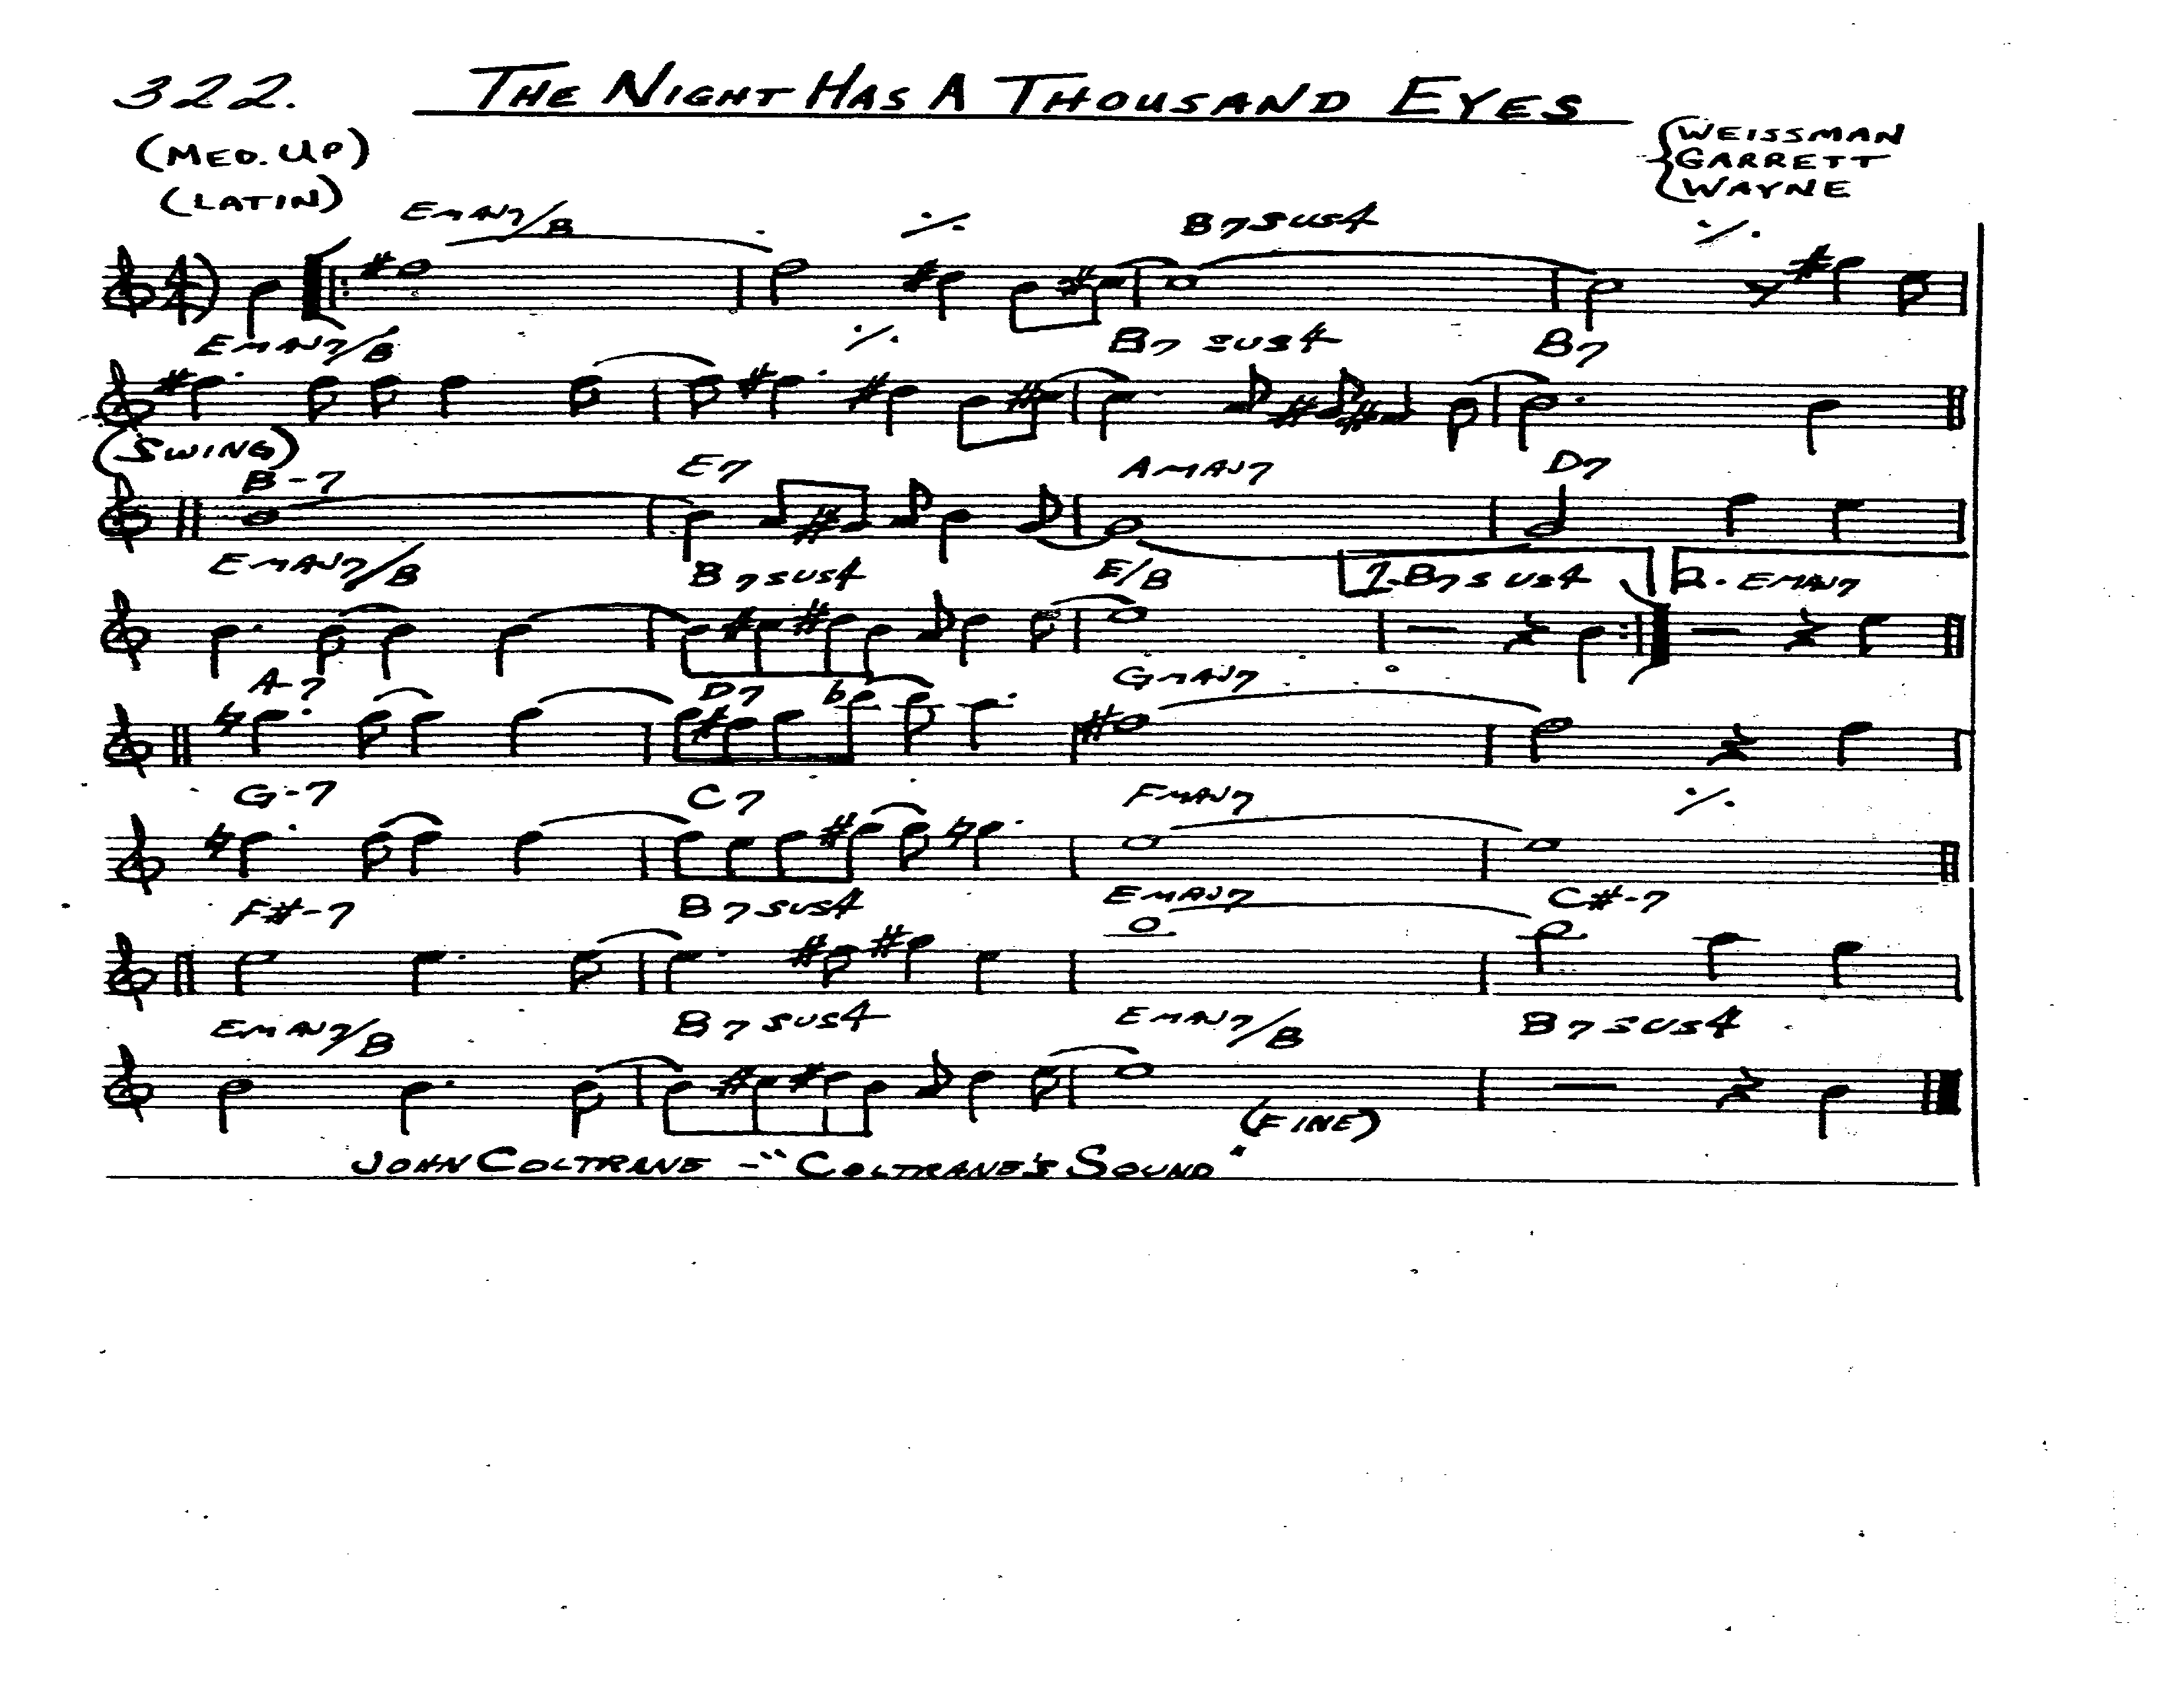 322. THE NIGHT HAS A THOUSAND EYES
(MED. UP)
(LATIN)
WEISSMAN
GARRETT
WAYNE
EMAJ7/B B7SUS4
4/4
EMAJ7/B B7 SUS4 B7
(SWING)
B-7 E7 AMAJ7 D7
EMAJ7/B B7SUS4 E/B 1. B7SUS4 2. EMAJ7
A-7 D7 GMAJ7
G-7 C7 FMAJ7
F#-7 B7SUS4 EMAJ7 C#-7
EMAJ7/B B7SUS4 EMAJ7/B B7SUS4
(FINE)
JOHN COLTRANE - "COLTRANE'S SOUND"